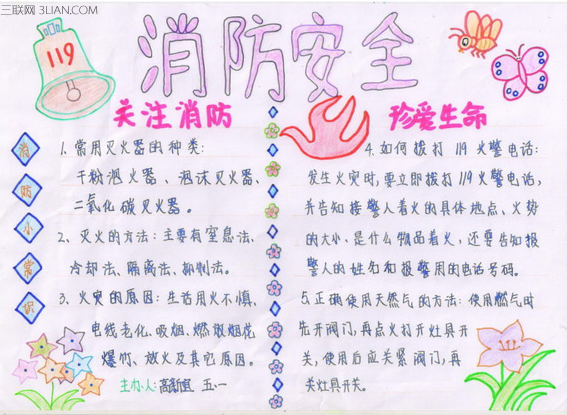 三联网 3LIAN.COM
119
消防安全
关注消防
珍爱生命
消防小常识
1. 常用灭火器的种类:
干粉泡火器、泡沫灭火器、
二氧化碳灭火器。
2、灭火的方法:主要有窒息法、
冷却法、隔离法、抑制法。
3、火灾的原因:生活用火不慎、
电线老化、吸烟、燃放烟花
爆竹、放火及其它原因。
主办人: 五一
4、如何拨打119火警电话:
发生火灾时,要立即拨打119火警电话,
并告知接警人着火的具体地点、火势
的大小、是什么物品着火,还要告知报
警人的姓名和报警用的电话号码。
5、正确使用天然气的方法:使用燃气时
先开阀门,再点火打开灶具开
关,使用后应关紧阀门,再
关灶具开关。